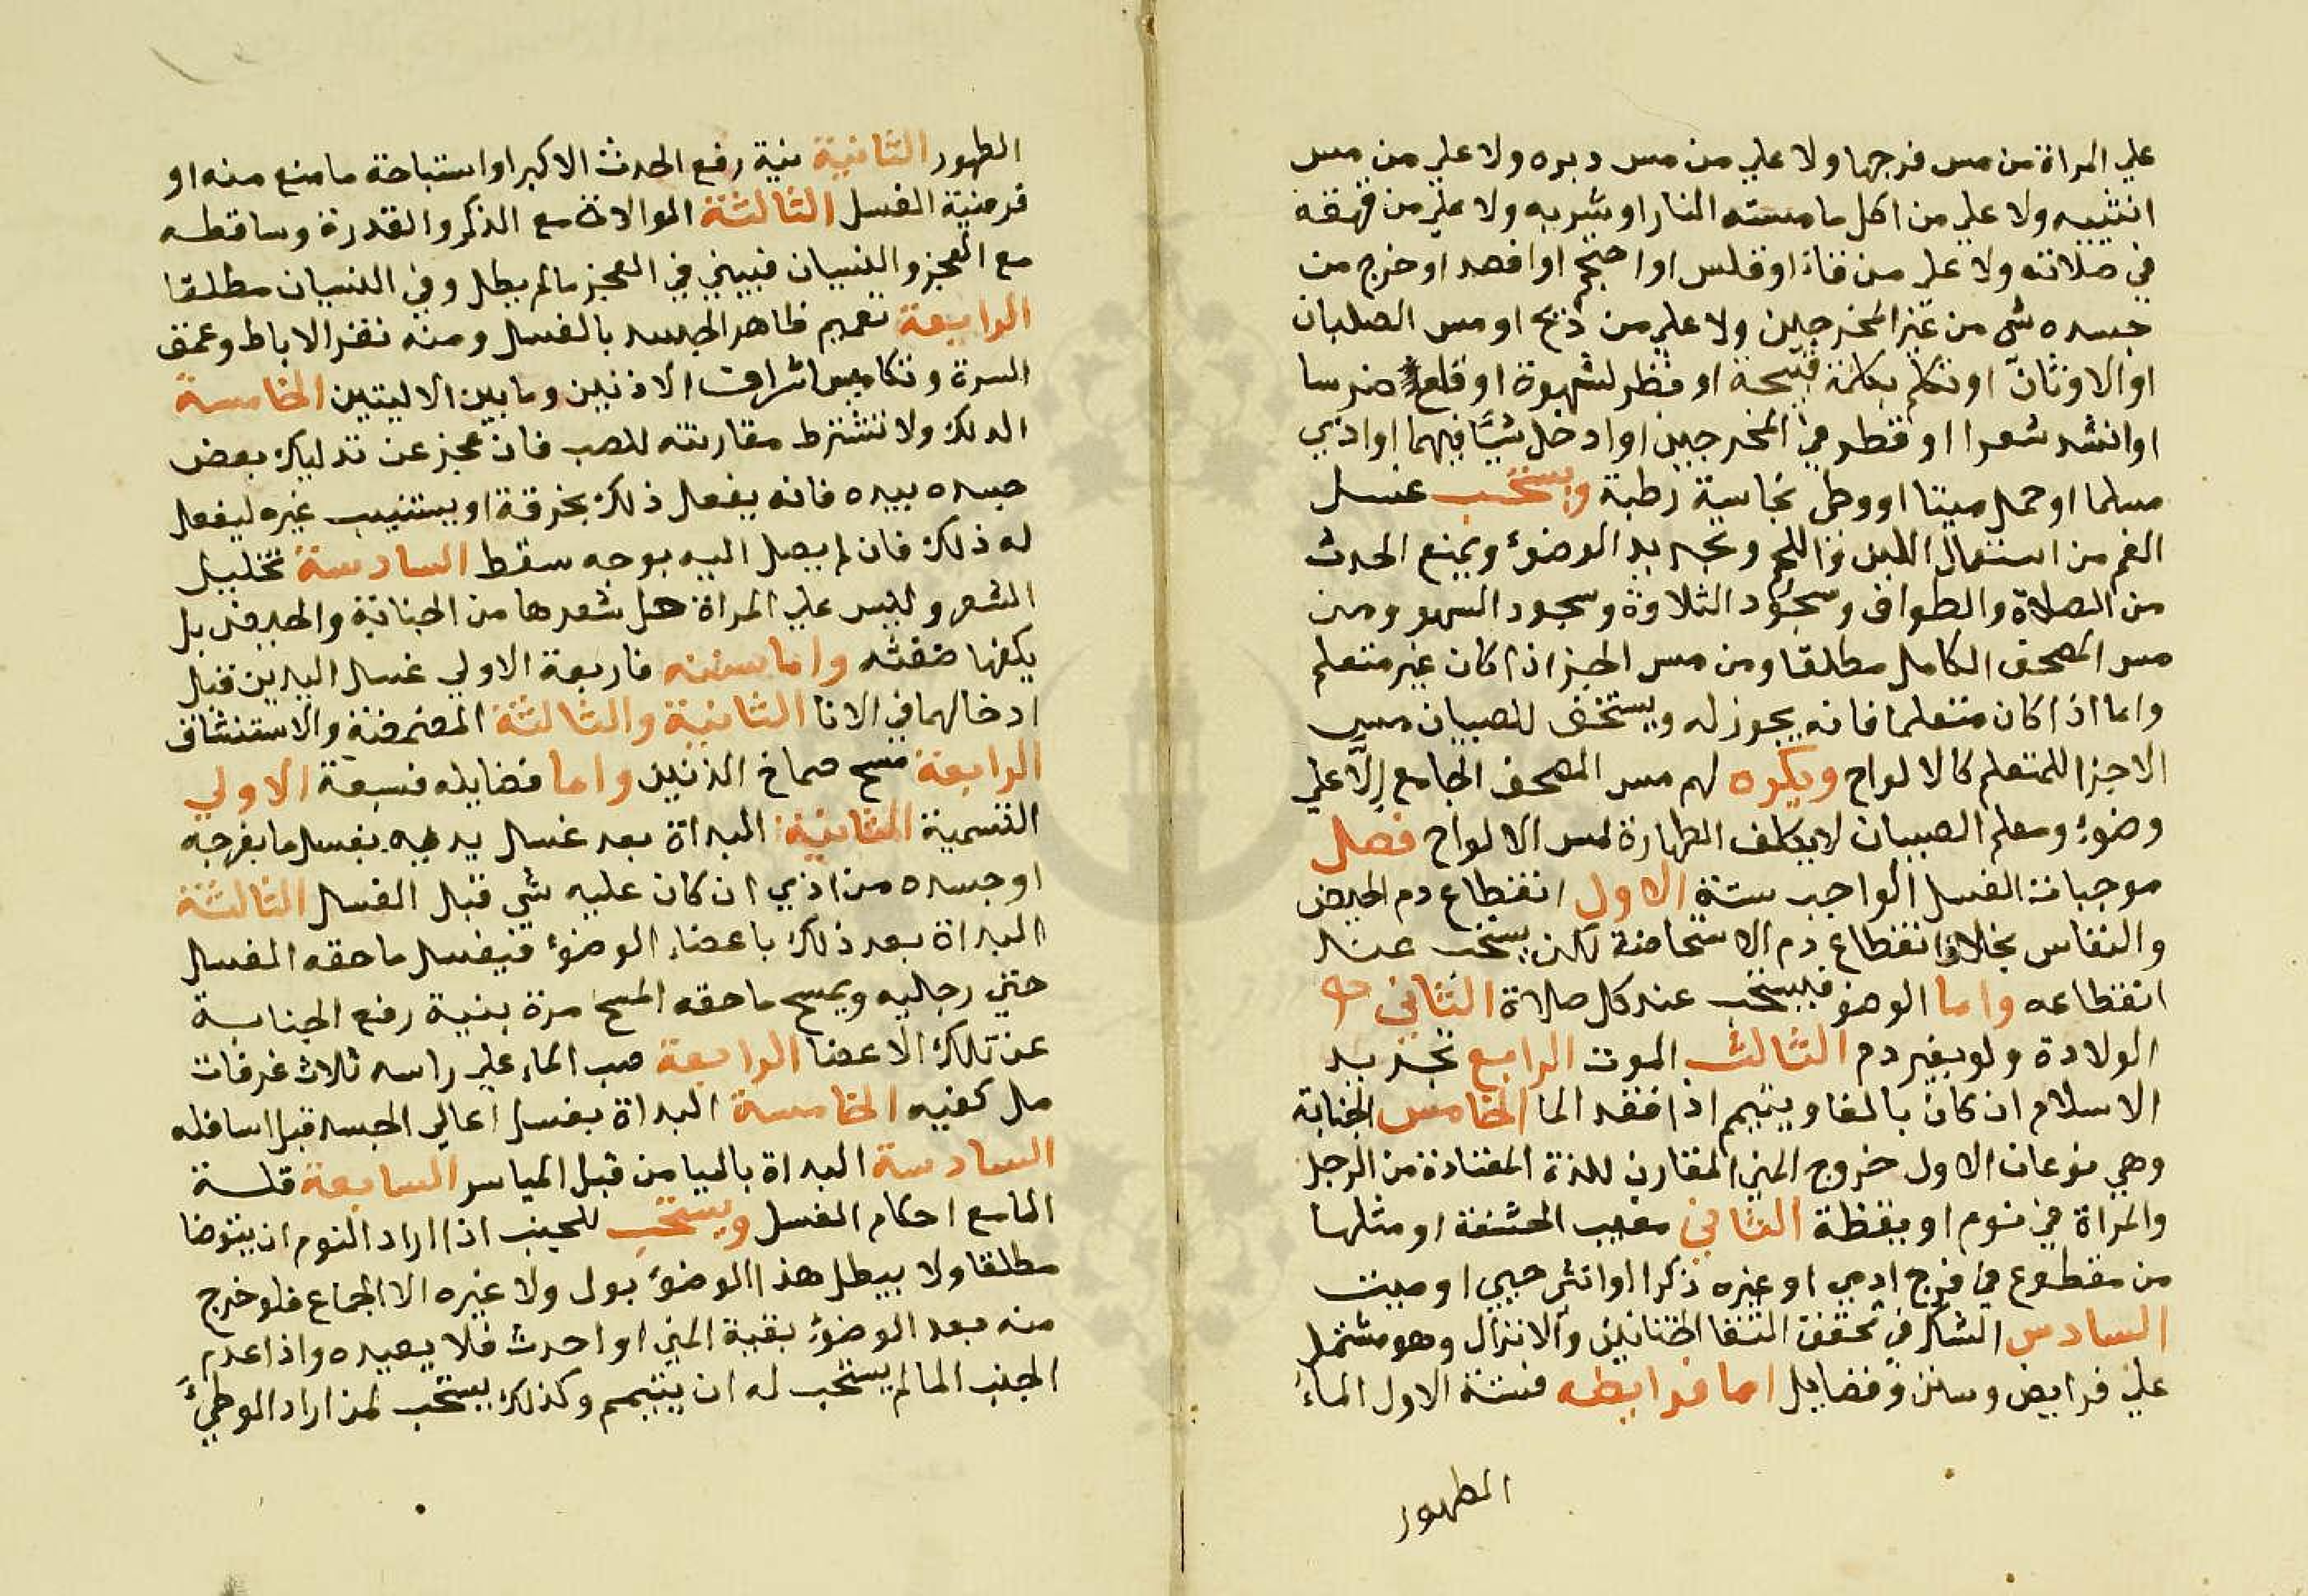 علي المراة من مس فرجها ولا علي من مس دبره ولا علي من مس
انثييه ولا علي من اكل ما مسته النار او شربه ولا علي من قهقه
في صلاته ولا علي من قاء او قلس او احتجم او افصد او خرج من
جسده شي من غير المخرجين ولا علي من ذبح او مس الصلبان
او الاوثان او تكلم بكلمة قبيحة او نظر لشهوة او قلع ضرسا
او انشد شعرا او قطر في المخرجين او ادخل شيئا فيهما او اذي
مسلما او حمل ميتا او وطي نجاسة رطبة ويستحب غسل
الفم من استعمال اللبن واللحم وتجديد الوضوء ويمنع الحدث
من الصلاة والطواف وسجود التلاوة وسجود السهو ومن
مس المصحف الكامل مطلقا ومن مس الجز اذا كان غير متعلم
واما اذا كان متعلما فانه يجوز له ويستخف للصبيان مس
الاجزا للمتعلم كالالواح ويكره لهم مس المصحف الجامع الا علي
وضوء ومعلم الصبيان لا يكلف الطهارة لمس الالواح فصل
موجبات الغسل الواجب ستة الاول انقطاع دم الحيض
والنفاس بخلاف انقطاع دم الاستحاضة لكن يستحب عند
انقطاعه واما الوضو فيستحب عند كل صلاة الثاني
الولادة ولو بغير دم الثالث الموت الرابع تجديد
الاسلام ان كان بالغا ويتيمم اذا فقد الما الخامس الجنابة
وهي نوعان الاول خروج المني المقارن للذة المعتادة من الرجل
والمراة في نوم او يقظة الثاني مغيب الحشفة او مثلها
من مقطوع في فرج ادمي او غيره ذكرا او انثي حيي او ميت
السادس الشك في تحقق التقا الختانين والانزال وهو مشتمل
علي فرايض وسنن وفضايل اما فرايضه فستة الاول الماء
الطهور
الطهور الثانية نية رفع الحدث الاكبر او استباحة ما منع منه او
فرضية الغسل الثالثة الموالاة مع الذكر والقدرة وساقطه
مع العجز والنسيان فيبني في العجز مالم يطل وفي النسيان مطلقا
الرابعة تعميم ظاهر الجسد بالغسل ومنه نقر الاباط وعمق
السرة وتكاميش اشراف الاذنين وما بين الاليتين الخامسة
الدلك ولا تشترط مقارنته للصب فان عجز عن تدليك بعض
جسده بيده فانه يفعل ذلك بخرقة او يستنيب غيره ليفعل
له ذلك فان لم يصل اليه بوجه سقط السادسة تخليل
الشعر وليس علي المراة حل شعرها من الجنابة والحيض بل
يكفها ضغثه واما سننه فاربعة الاولي غسل اليدين قبل
ادخالهما في الانا الثانية والثالثة المضمضة والاستنشاق
الرابعة مسح صماخ الاذنين واما فضايله فسبعة الاولي
التسمية الثانية البداة بعد غسل يديه بغسل ما بفرجه
او جسده من اذي ان كان عليه شي قبل الغسل الثالثة
البداة بعد ذلك باعضاء الوضوء فيغسل ما حقه الغسل
حتي رجليه ويمسح ما حقه المسح مرة بنية رفع الجنابة
عن تلك الاعضا الرابعة صب الماء علي راسه ثلاث غرفات
مل كفيه الخامسة البداة بغسل اعالي الجسد قبل اسافله
السادسة البداة بالميا من قبل المياسر السابعة قلة
الما مع احكام الغسل ويستحب للجنب اذا اراد النوم ان يتوضا
مطلقا ولا يبطل هذا الوضوء بول ولا غيره الا الجماع فلو خرج
منه بعد الوضوء بقية المني او احدث فلا يعيده واذا عدم
الجنب الما لم يستحب له ان يتيمم وكذلك يستحب لمن اراد الوطيء